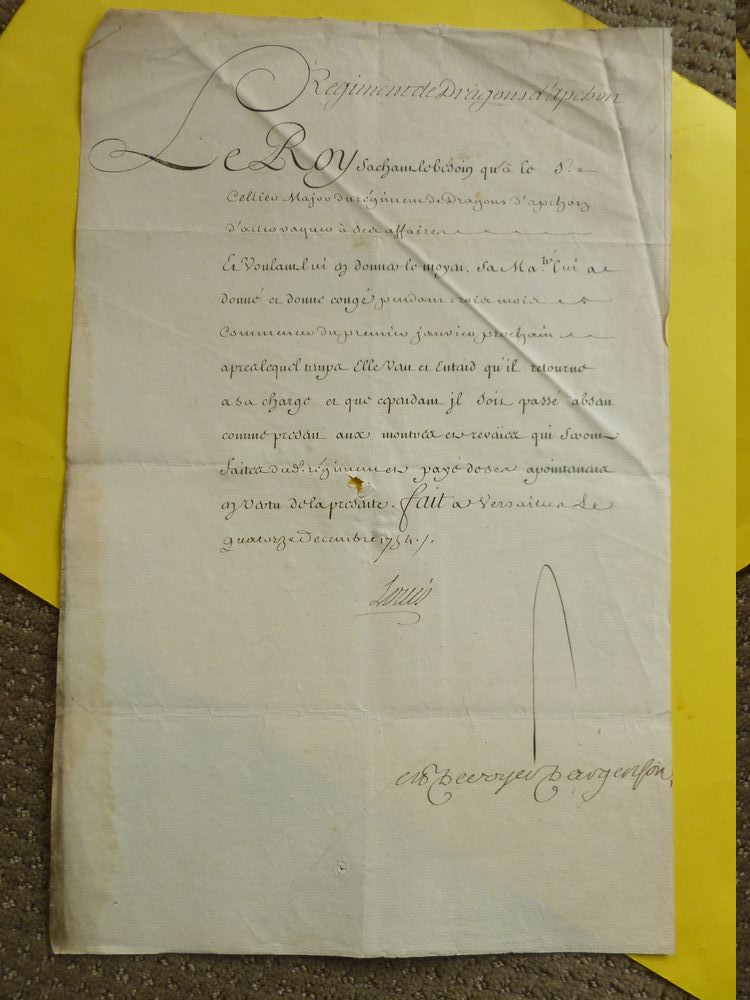 Regiment de Dragons d'apchon
Le Roy Sachant le besoin qu'a le S.r
Cellier Major du régiment de Dragons d'apchon
d'aller vaquer à ses affaires
Et Voulant lui en donner le moyen. Sa Ma.té lui a
donné et donne congé pendant trois mois
Commencer du premier janvier prochain
apres lequel temps Elle Veut et Entend qu'il retourne
a sa charge et que cependant jl soit passé absent
comme present aux montres et reveües qui Seront
faites dud. régiment et payé de ses apointements
en vertu de la presente. fait a Versailles Le
quatorze Decembre 1754./.
Louis
De voyer D'argenson